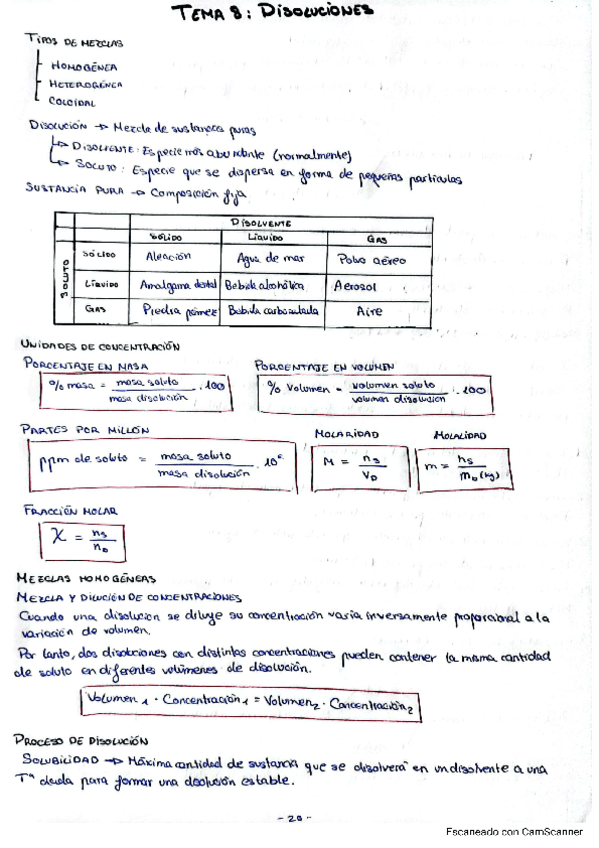 TEMA 8: DISOLUCIONES
TIPOS DE MEZCLAS
HOMOGÉNEA
HETEROGÉNEA
COLOIDAL
DISOLUCIÓN → Mezcla de sustancias puras
DISOLVENTE: Especie más abundante (normalmente)
SOLUTO: Especie que se dispersa en forma de pequeñas partículas
SUSTANCIA PURA → Composición fija
DISOLVENTE
SÓLIDO LÍQUIDO GAS
SOLUTO
SÓLIDO Aleación Agua de mar Polvo aéreo
LÍQUIDO Amalgama dental Bebida alcohólica Aerosol
GAS Piedra pómez Bebida carbonatada Aire
UNIDADES DE CONCENTRACIÓN
PORCENTAJE EN MASA PORCENTAJE EN VOLUMEN
% masa = masa soluto / masa disolución · 100
% Volumen = volumen soluto / volumen disolución · 100
PARTES POR MILLÓN MOLARIDAD MOLALIDAD
ppm de soluto = masa soluto / masa disolución · 10⁶
M = nₛ / V_D
m = nₛ / m_D (kg)
FRACCIÓN MOLAR
X = nₛ / n_D
MEZCLAS HOMOGÉNEAS
MEZCLA Y DILUCIÓN DE CONCENTRACIONES
Cuando una disolución se diluye su concentración varía inversamente proporcional a la
variación de volumen.
Por tanto, dos disoluciones con distintas concentraciones pueden contener la misma cantidad
de soluto en diferentes volúmenes de disolución.
Volumen₁ · Concentración₁ = Volumen₂ · Concentración₂
PROCESO DE DISOLUCIÓN
SOLUBILIDAD → Máxima cantidad de sustancia que se disolverá en un disolvente a una
Tª dada para formar una disolución estable.
- 20 -
Escaneado con CamScanner